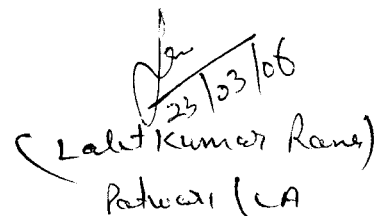 23/03/06
(Lalit Kumar Rana)
Patwari (LA